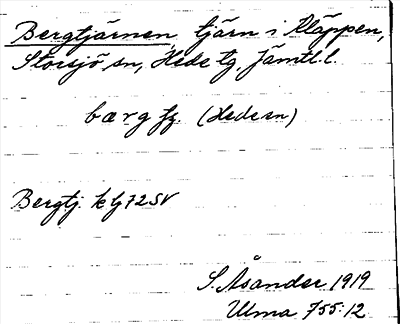 Bergtjärnen, tjärn i Kläppen,
Storsjö sn, Hede tg, Jämtl. l.
bærg fg. (Hede sn)
Bergtj. k bj 72 SV
S. Åsander 1919
Ulma 755:12